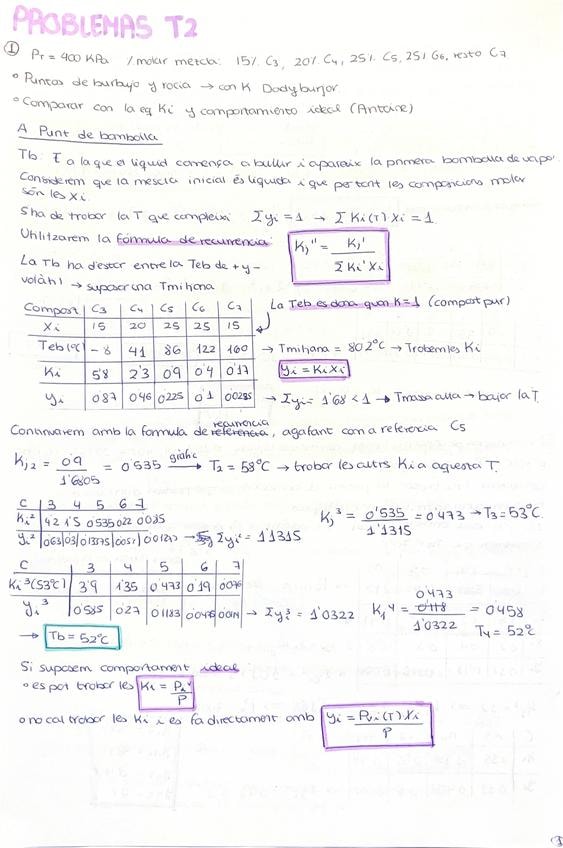 PROBLEMAS T2
① PT = 400 KPa / molar mezcla: 15% C3, 20% C4, 25% C5, 25% C6, resto C7
° Puntos de burbuja y rocía → con K Dadyburjor
° Comparar con la eq Ki y comportamiento ideal (Antoine)
A Punt de bombolla
Tb: T a la que el líquid comença a bullir i apareix la primera bombolla de vapor
Considerem que la mescla inicial és líquida i que per tant les composicions molar
són les Xi.
S'ha de trobar la T que compleixi Σyi = 1 → ΣKi(T)Xi = 1
Utilitzarem la fórmula de recurrencia: Kj'' = Kj' / ΣKi'Xi
La Tb ha d'estar entre la Teb de + y -
volàtil → suposar una Tmitjana
La Teb es dona quan K=1 (compost pur)
Compost | C3 | C4 | C5 | C6 | C7
Xi | 15 | 20 | 25 | 25 | 15
Teb(ºC) | -8 | 41 | 86 | 122 | 160 → Tmitjana = 80'2ºC → Trobem les Ki
Ki | 5'8 | 2'3 | 0'9 | 0'4 | 0'17 yi = KiXi
yi | 0'87 | 0'46 | 0'225 | 0'1 | 0'0255 → Σyi = 1'68 < 1 → T massa alta → bajar la T
Continuarem amb la formula de referència recurrencia, agafant com a referencia C5
Kj,2 = 0'9 / 1'6805 = 0'535 gràfic → T2 = 58ºC → trobar les altres Ki a aquesta T.
C | 3 4 5 6 7
Ki² | 4'2 1'5 0'535 0'22 0'085
yi² | 0'63 | 0'3 | 0'13375 | 0'055 | 0'01275 → Σyi² = 1'1315
Kj³ = 0'535 / 1'1315 = 0'473 → T3 = 53ºC
C | 3 | 4 | 5 | 6 | 7
Ki³(53ºC) | 3'9 | 1'35 | 0'473 | 0'19 | 0'076
yi³ | 0'585 | 0'27 | 0'1183 | 0'0475 | 0'0114 → Σyi³ = 1'0322
Kj⁴ = 0'473 0'118 / 1'0322 = 0'458
T4 = 52ºC
→ Tb = 52ºC
Si suposem comportament ideal
° es pot trobar les Ki = Piv / P
° o no cal trobar les Ki i es fa directament amb yi = Pvi(T)Xi / P